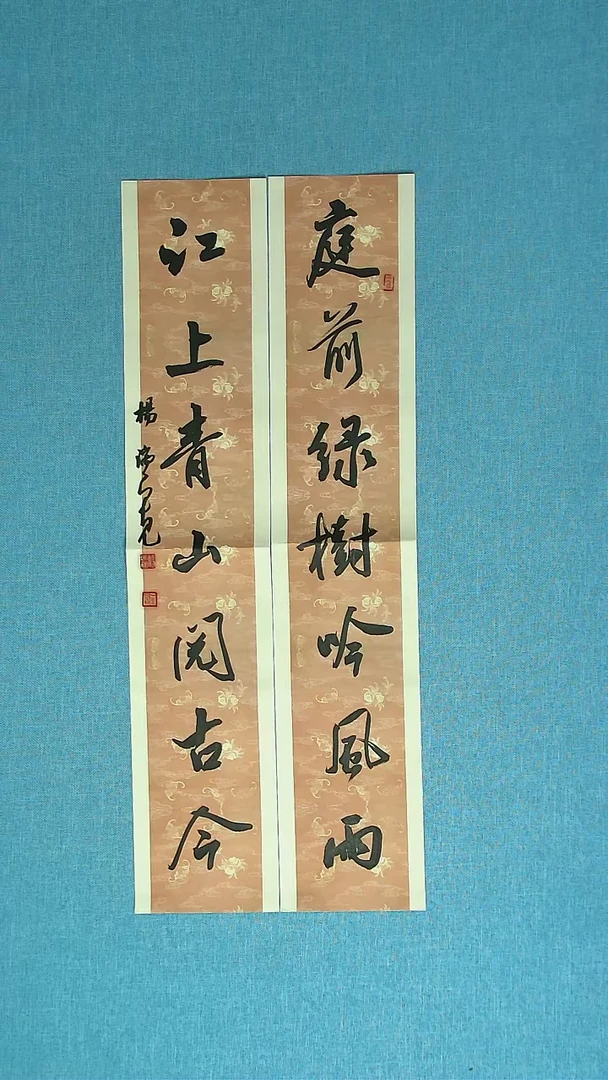 庭前绿樹吟風雨
江上青山阅古今
楊